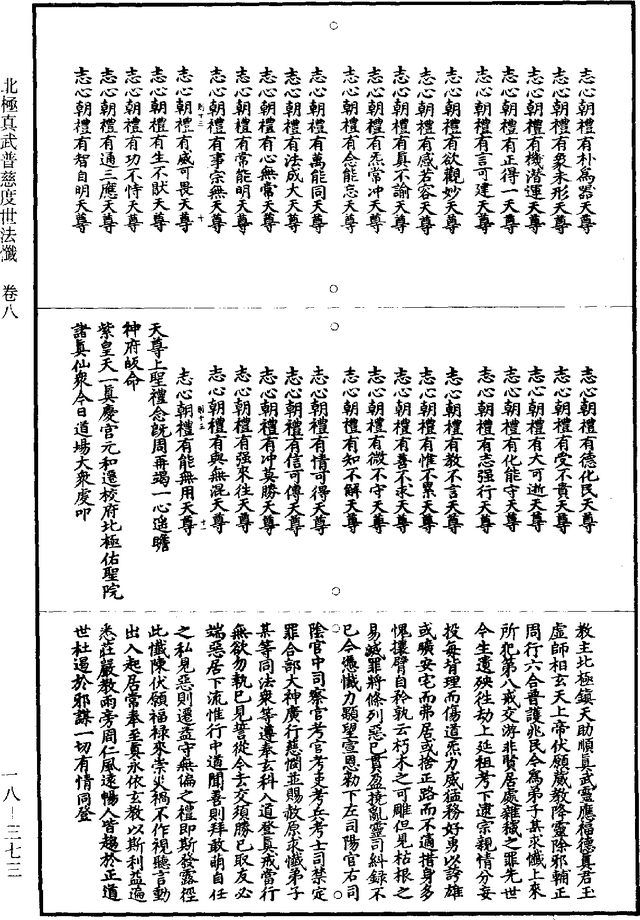 北極真武普慈度世法懺 卷八
一八—三七三
志心朝禮有朴為器天尊
志心朝禮有象未形天尊
志心朝禮有機潛運天尊
志心朝禮有正得一天尊
志心朝禮有言可建天尊
志心朝禮有欲觀妙天尊
志心朝禮有感若容天尊
志心朝禮有真不諭天尊
志心朝禮有炁常冲天尊
志心朝禮有念能忘天尊
志心朝禮有萬能同天尊
志心朝禮有法成大天尊
志心朝禮有心無常天尊
志心朝禮有常能明天尊
志心朝禮有事宗無天尊
志心朝禮有威可畏天尊
志心朝禮有生不猒天尊
志心朝禮有功不恃天尊
志心朝禮有通三應天尊
志心朝禮有智自明天尊
志心朝禮有德化民天尊
志心朝禮有受不貴天尊
志心朝禮有大可逝天尊
志心朝禮有化能守天尊
志心朝禮有志強行天尊
志心朝禮有教不言天尊
志心朝禮有惟不累天尊
志心朝禮有善不求天尊
志心朝禮有微不守天尊
志心朝禮有知不解天尊
志心朝禮有情可得天尊
志心朝禮有信可傳天尊
志心朝禮有冲莫勝天尊
志心朝禮有强來往天尊
志心朝禮有與無混天尊
志心朝禮有能無用天尊
天尊上聖禮念旣周再竭一心遙瞻
神府皈命
紫皇天一真慶宮元和遷校府北極佑聖院
諸真仙衆今日道場大衆虔叩
教主北極鎮天助順真武靈應福德真君玉
虛師相玄天上帝伏願歲教降靈除邪輔正
周行六合普護兆民今為弟子某求懺上來
所犯第八戒交游非賢居處雜穢之罪先世
今生遺殃往劫上延祖考下逮宗親情分妄
投每背理而傷道炁力威猛務好勇以誇雄
或曠安宅而弗居或捨正路而不適措身多
愧攘臂自矜孰云朽木之可雕但見枯根之
易滅罪將條列惡已貫盈撓亂靈司糾錄不
已今憑懺力顯望宣恩勑下左司陽官右司
陰官中司察官考官考吏考兵考士司禁定
罪合部大神廣行慈憫並賜赦原求懺弟子
某等同法衆等遵奉玄科入道登真戒當行
無欲勿執已見誓從今去交須勝已取友必
端惡居下流惟行中道聞善則拜敢萌自任
之私見惡則遷益守無偏之禮即斯發露徑
此懺陳伏願福祿來崇火禍不作視聽言動
出入起居常奉至真永依玄教以斯利益遍
悉莊嚴教雨旁周仁風遠暢人皆趨於正道
世杜遏於邪謀一切有情同登